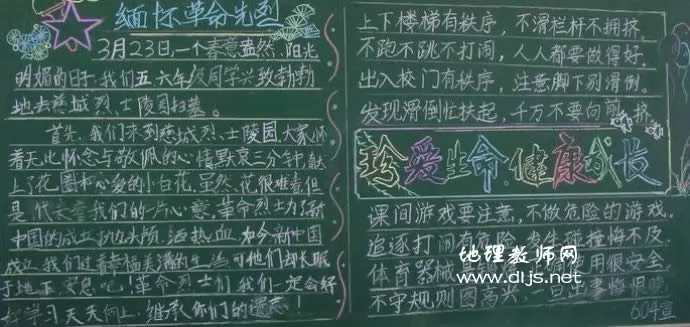 缅怀革命先烈
3月23日,一个春意盎然、阳光
明媚的日子,我们五、六年级同学兴致勃勃
地去慈城烈士陵园扫墓。
首先,我们来到慈城烈士陵园,大家怀
着无比怀念与敬佩的心情默哀三分钟,献
上了花圈和心爱的小白花,虽然,花很难看但
是,代表着我们的一片心意,革命烈士为了新
中国的成立抛头颅,洒热血,如今新中国
成立,我们过着幸福美满的生活可他们却长眠
于地下,安息吧!革命烈士们,我们一定会好
好学习天天向上,继承你们的遗志!
上下楼梯有秩序,不滑栏杆不拥挤。
不跑不跳不打闹,人人都要做得好。
出入校门有秩序,注意脚下别滑倒。
发现滑倒忙扶起,千万不要向前挤
珍爱生命,健康成长
课间游戏要注意,不做危险的游戏。
追逐打闹有危险,发生碰撞悔不及
体育器械 用很安全
不守规则图高兴,一旦出事悔恨晚
604宣
地理教师网
www.dljs.net